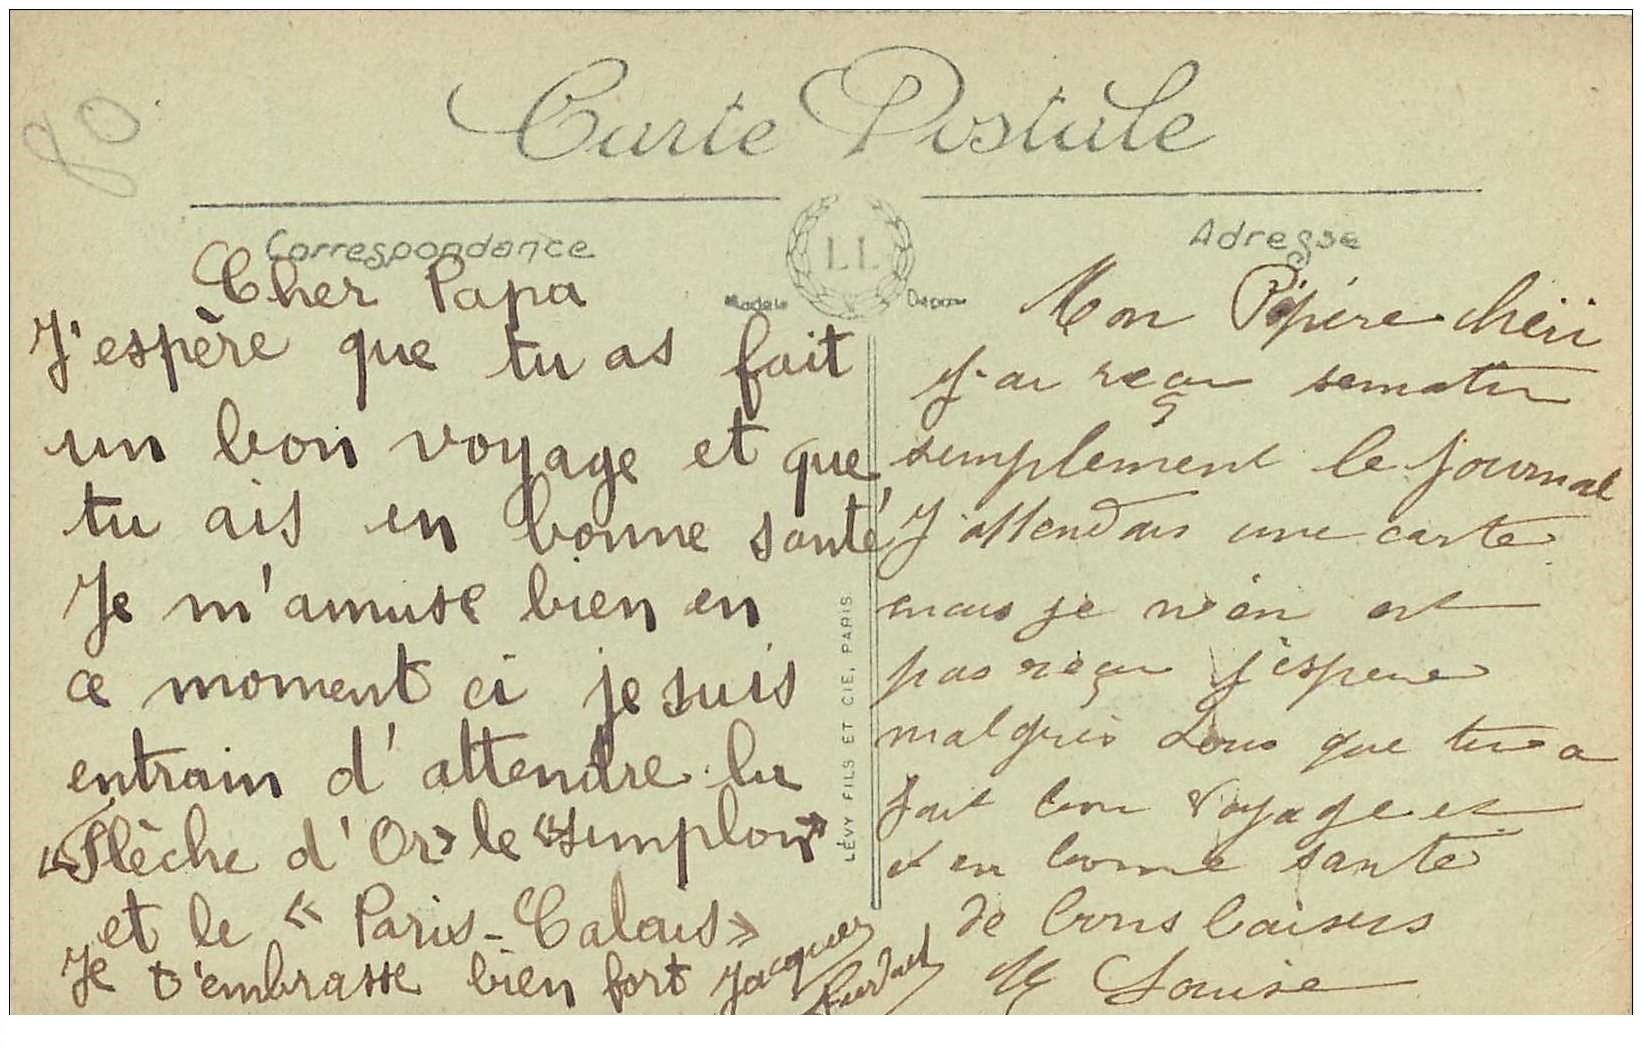 80
Carte Postale
Correspondance
LL
Modèle Déposé
Adresse
Cher Papa
J'espère que tu as fait
un bon voyage et que
tu ais en bonne santé
Je m'amuse bien en
ce moment ci je suis
entrain d'attendre la
"Flèche d'Or" le "simplon"
et le « Paris-Calais »
Je t'embrasse bien fort Jacques
LÉVY FILS ET CIE, PARIS
Mon Pépère chéri
J'ai reçu sematin
simplement le journal
J'attendais une carte
mais je n'en est
pas reçu j'espere
malgres tous que tu a
fait bon voyage et
et en bonne sante
de bons baisers
M Louise